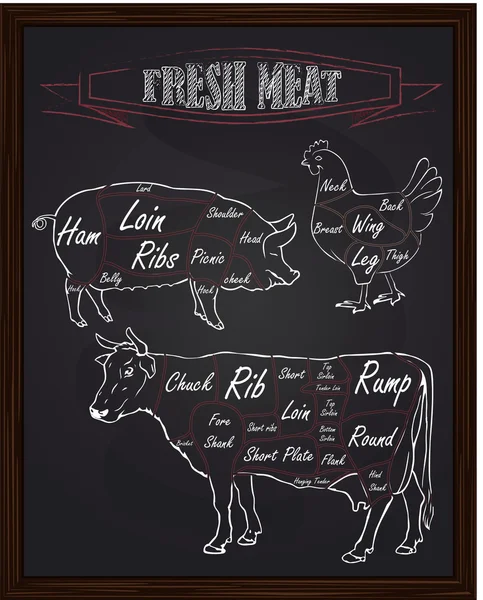 FRESH MEAT
Lard
Ham
Loin
Ribs
Shoulder
Head
Picnic
cheek
Belly
Hock
Hock
Neck
Back
Breast
Wing
Leg
Thigh
Chuck
Rib
Short
Loin
Top
Sirloin
Tender Loin
Top
Sirloin
Bottom
Sirloin
Rump
Round
Fore
Shank
Short ribs
Brisket
Short Plate
Flank
Hanging Tender
Hind
Shank